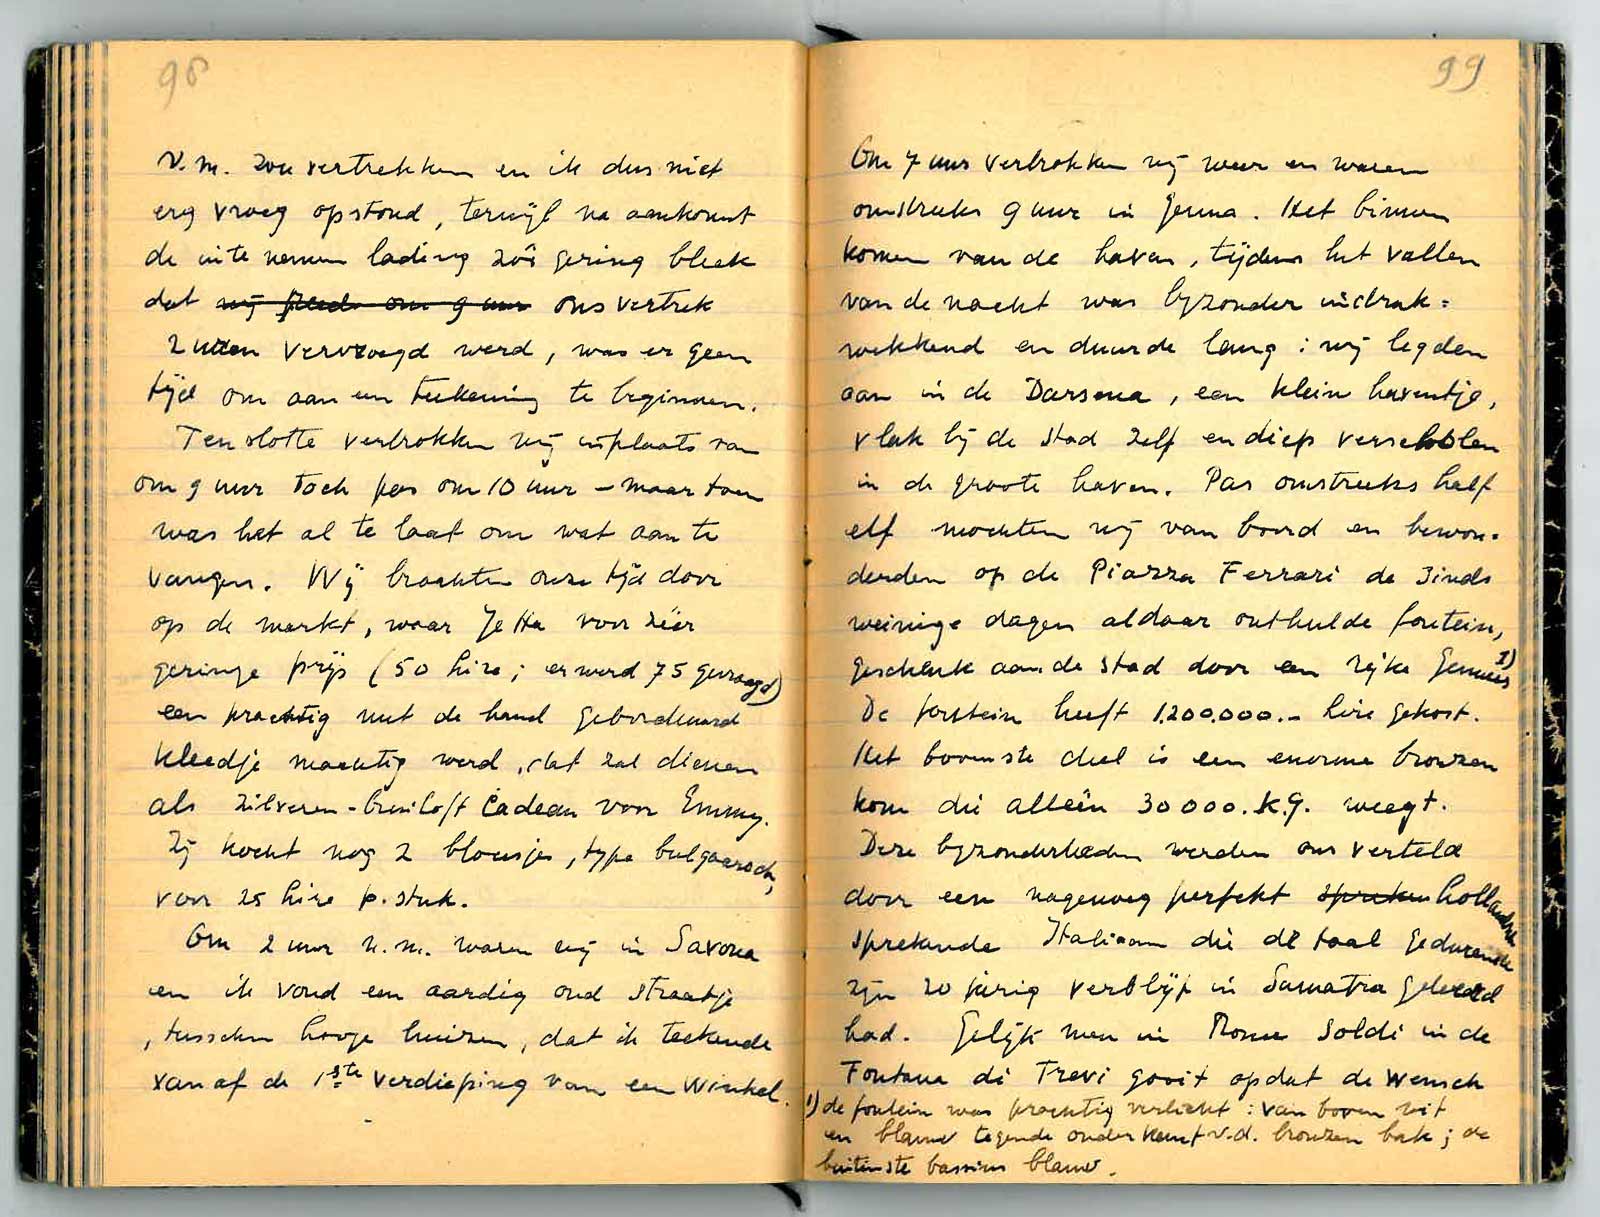 98
v.m. zou vertrekken en ik dus niet
erg vroeg opstond, terwijl na aankomst
de inte nemen lading zóó gering bleek
dat wij reeds om 9 uur ons vertrek
2 uren vervroegd werd, was er geen
tijd om aan een teekening te beginnen.
Ten slotte vertrokken wij inplaats van
om 9 uur toch pas om 10 uur – maar toen
was het al te laat om wat aan te
vangen. Wij brachten onze tijd door
op de markt, waar Jetta voor zéér
geringe prijs (50 lire; er werd 75 gevraagd)
een prachtig met de hand geborduurd
kleedje machtig werd, dat zal dienen
als zilveren-bruiloft cadeau voor Emmy.
Zij kocht nog 2 blousjes, type bulgaarsch,
voor 25 lire p. stuk.
Om 2 uur n.m. waren wij in Savona
en ik vond een aardig oud straatje
, tusschen hooge huizen, dat ik teekende
vanaf de 1ste verdieping van een winkel.
99
Om 7 uur vertrokken wij weer en waren
omstreeks 9 uur in Genua. Het binnen
komen van de haven, tijdens het vallen
van de nacht was byzonder indruk=
wekkend en duurde lang: wij legden
aan in de Darsena, een klein haventje,
vlak bij de stad zelf en diep verscholen
in de groote haven. Pas omstreeks half
elf mochten wij van boord en bewon-
derden op de Piazza Ferrari de sinds
weinige dagen aldaar onthulde fontein,
geschenk aan de stad door een rijke Genuees 1)
De fontein heeft 1.200.000.– lire gekost.
Het bovenste deel is een enorme bronzen
kom die alleén 30000. K.G. weegt.
Deze byzonderheden werden ons verteld
door een nagenoeg perfekt spreken hollandsch
sprekende Italiaan die de taal gedurende
zijn 20 jarig verblijf in Sumatra geleerd
had. Gelijk men in Rome soldi in de
Fontana di Trevi gooit opdat de wensch
1) de fontein was prachtig verlicht: van boven wit
en blauw tegen de onderkant v.d. bronzen bak; de
buitenste bassins blauw.